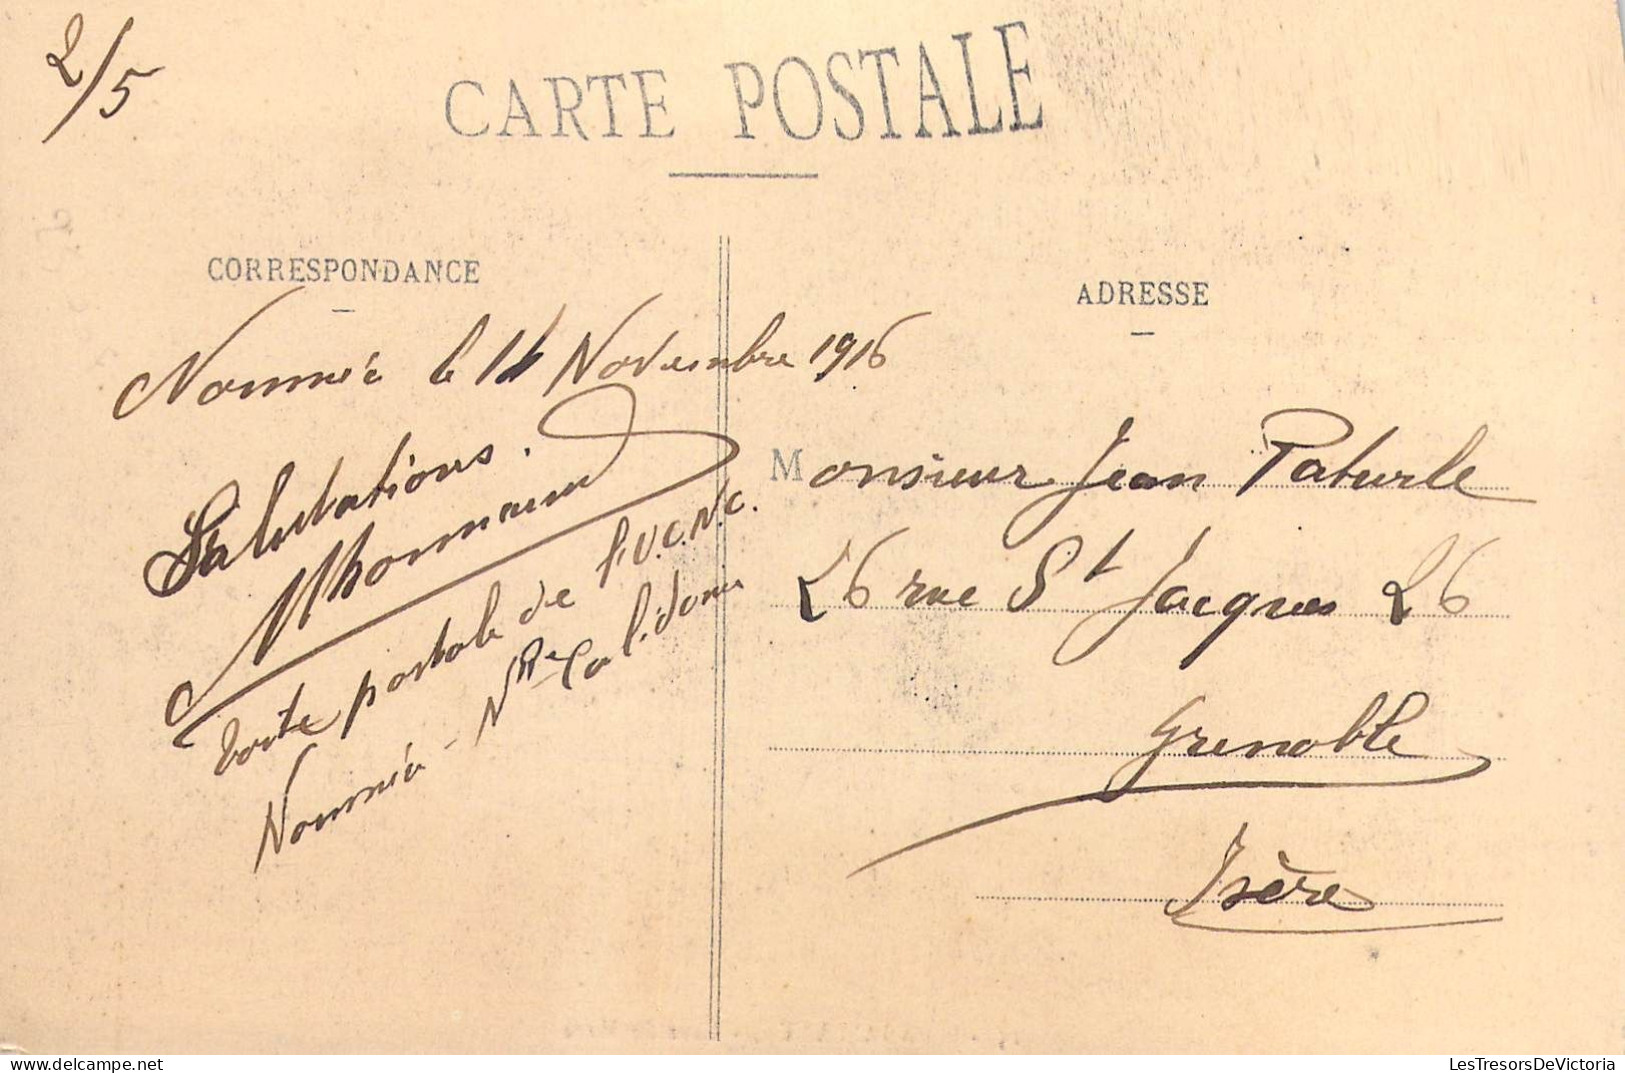 2/5
CARTE POSTALE
CORRESPONDANCE
ADRESSE
Nouméa le 14 Novembre 1916
Salutations.
carte postale de l'U.C.N.C.
Nouméa - Nlle Calédonie
Monsieur Jean Paturle
26 rue St Jacques 26
Grenoble
Isère
LesTresorsDeVictoria